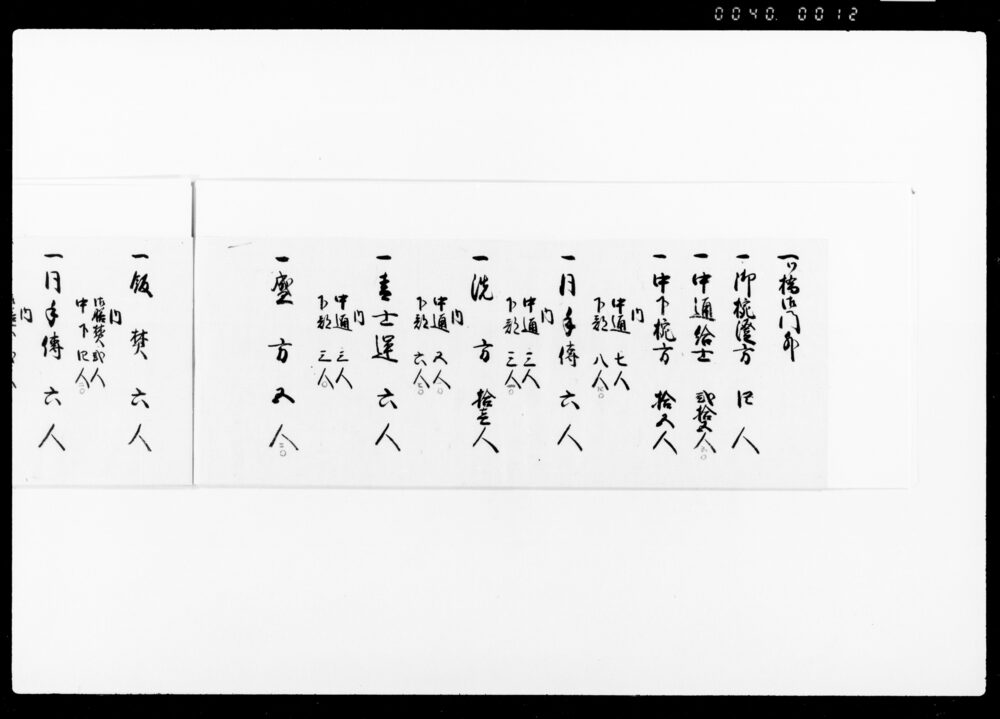 0040.0012
一御椀塗方 四人
一中通給士 弐拾五人
一中下椀方 拾五人
内
中通 七人
下部 八人
一同手傳 六人
内
中通 三人
下部 三人
一洗方 拾壱人
内
中通 五人
下部 六人
一 士運 六人
内
中通 三人
下部 三人
一 方 五人
一飯焚 六人
内
焚 弐人
中下 四人
一同手傳 六人
内